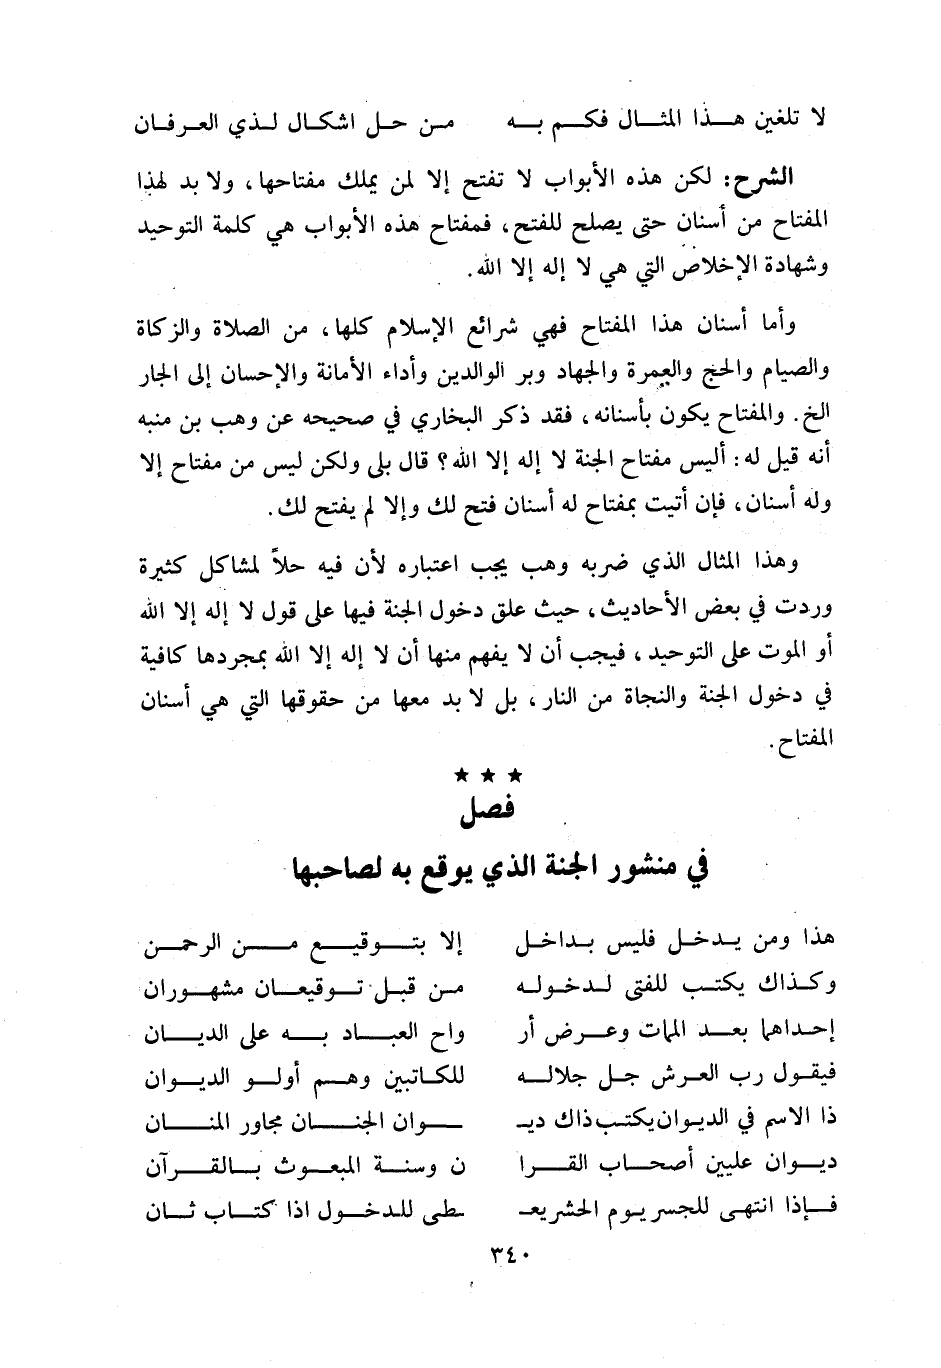 لا تلغين هـذا المثـال فكـم بـه مـن حـل اشكـال لـذي العـرفـان
الشرح: لكن هذه الأبواب لا تفتح إلا لمن يملك مفتاحها، ولا بد لهذا
المفتاح من أسنان حتى يصلح للفتح، فمفتاح هذه الأبواب هي كلمة التوحيد
وشهادة الإخلاص التي هي لا إله إلا الله.
وأما أسنان هذا المفتاح فهي شرائع الإسلام كلها، من الصلاة والزكاة
والصيام والحج والعمرة والجهاد وبر الوالدين وأداء الأمانة والإحسان إلى الجار
الخ. والمفتاح يكون بأسنانه، فقد ذكر البخاري في صحيحه عن وهب بن منبه
أنه قيل له: أليس مفتاح الجنة لا إله إلا الله؟ قال بلى ولكن ليس من مفتاح إلا
وله أسنان، فإن أتيت بمفتاح له أسنان فتح لك وإلا لم يفتح لك.
وهذا المثال الذي ضربه وهب يجب اعتباره لأن فيه حلاً لمشاكل كثيرة
وردت في بعض الأحاديث، حيث علق دخول الجنة فيها على قول لا إله إلا الله
أو الموت على التوحيد، فيجب أن لا يفهم منها أن لا إله إلا الله بمجردها كافية
في دخول الجنة والنجاة من النار، بل لا بد معها من حقوقها التي هي أسنان
المفتاح.
★ ★ ★
فصل
في منشور الجنة الذي يوقع به لصاحبها
هذا ومن يـدخـل فليس بـداخـل إلا بتـوقيـع مـن الرحمـن
وكـذاك يكتـب للفتى لـدخـولـه مـن قبـل تـوقيعـان مشهـوران
إحـداهما بعـد الممات وعـرض أر واح العبـاد بـه على الديـان
فيقـول رب العـرش جـل جلالـه للكـاتبين وهـم أولـو الديـوان
ذا الاسم في الديوان يكتب ذاك ديـ ـوان الجنـان مجاور المنـان
ديـوان عليين أصحـاب القـرا ن وسنـة المبعـوث بـالقـرآن
فـإذا انتهـى للجسر يـوم الحشر يعـ ـطى للدخـول اذا كتـاب ثـان
٣٤٠